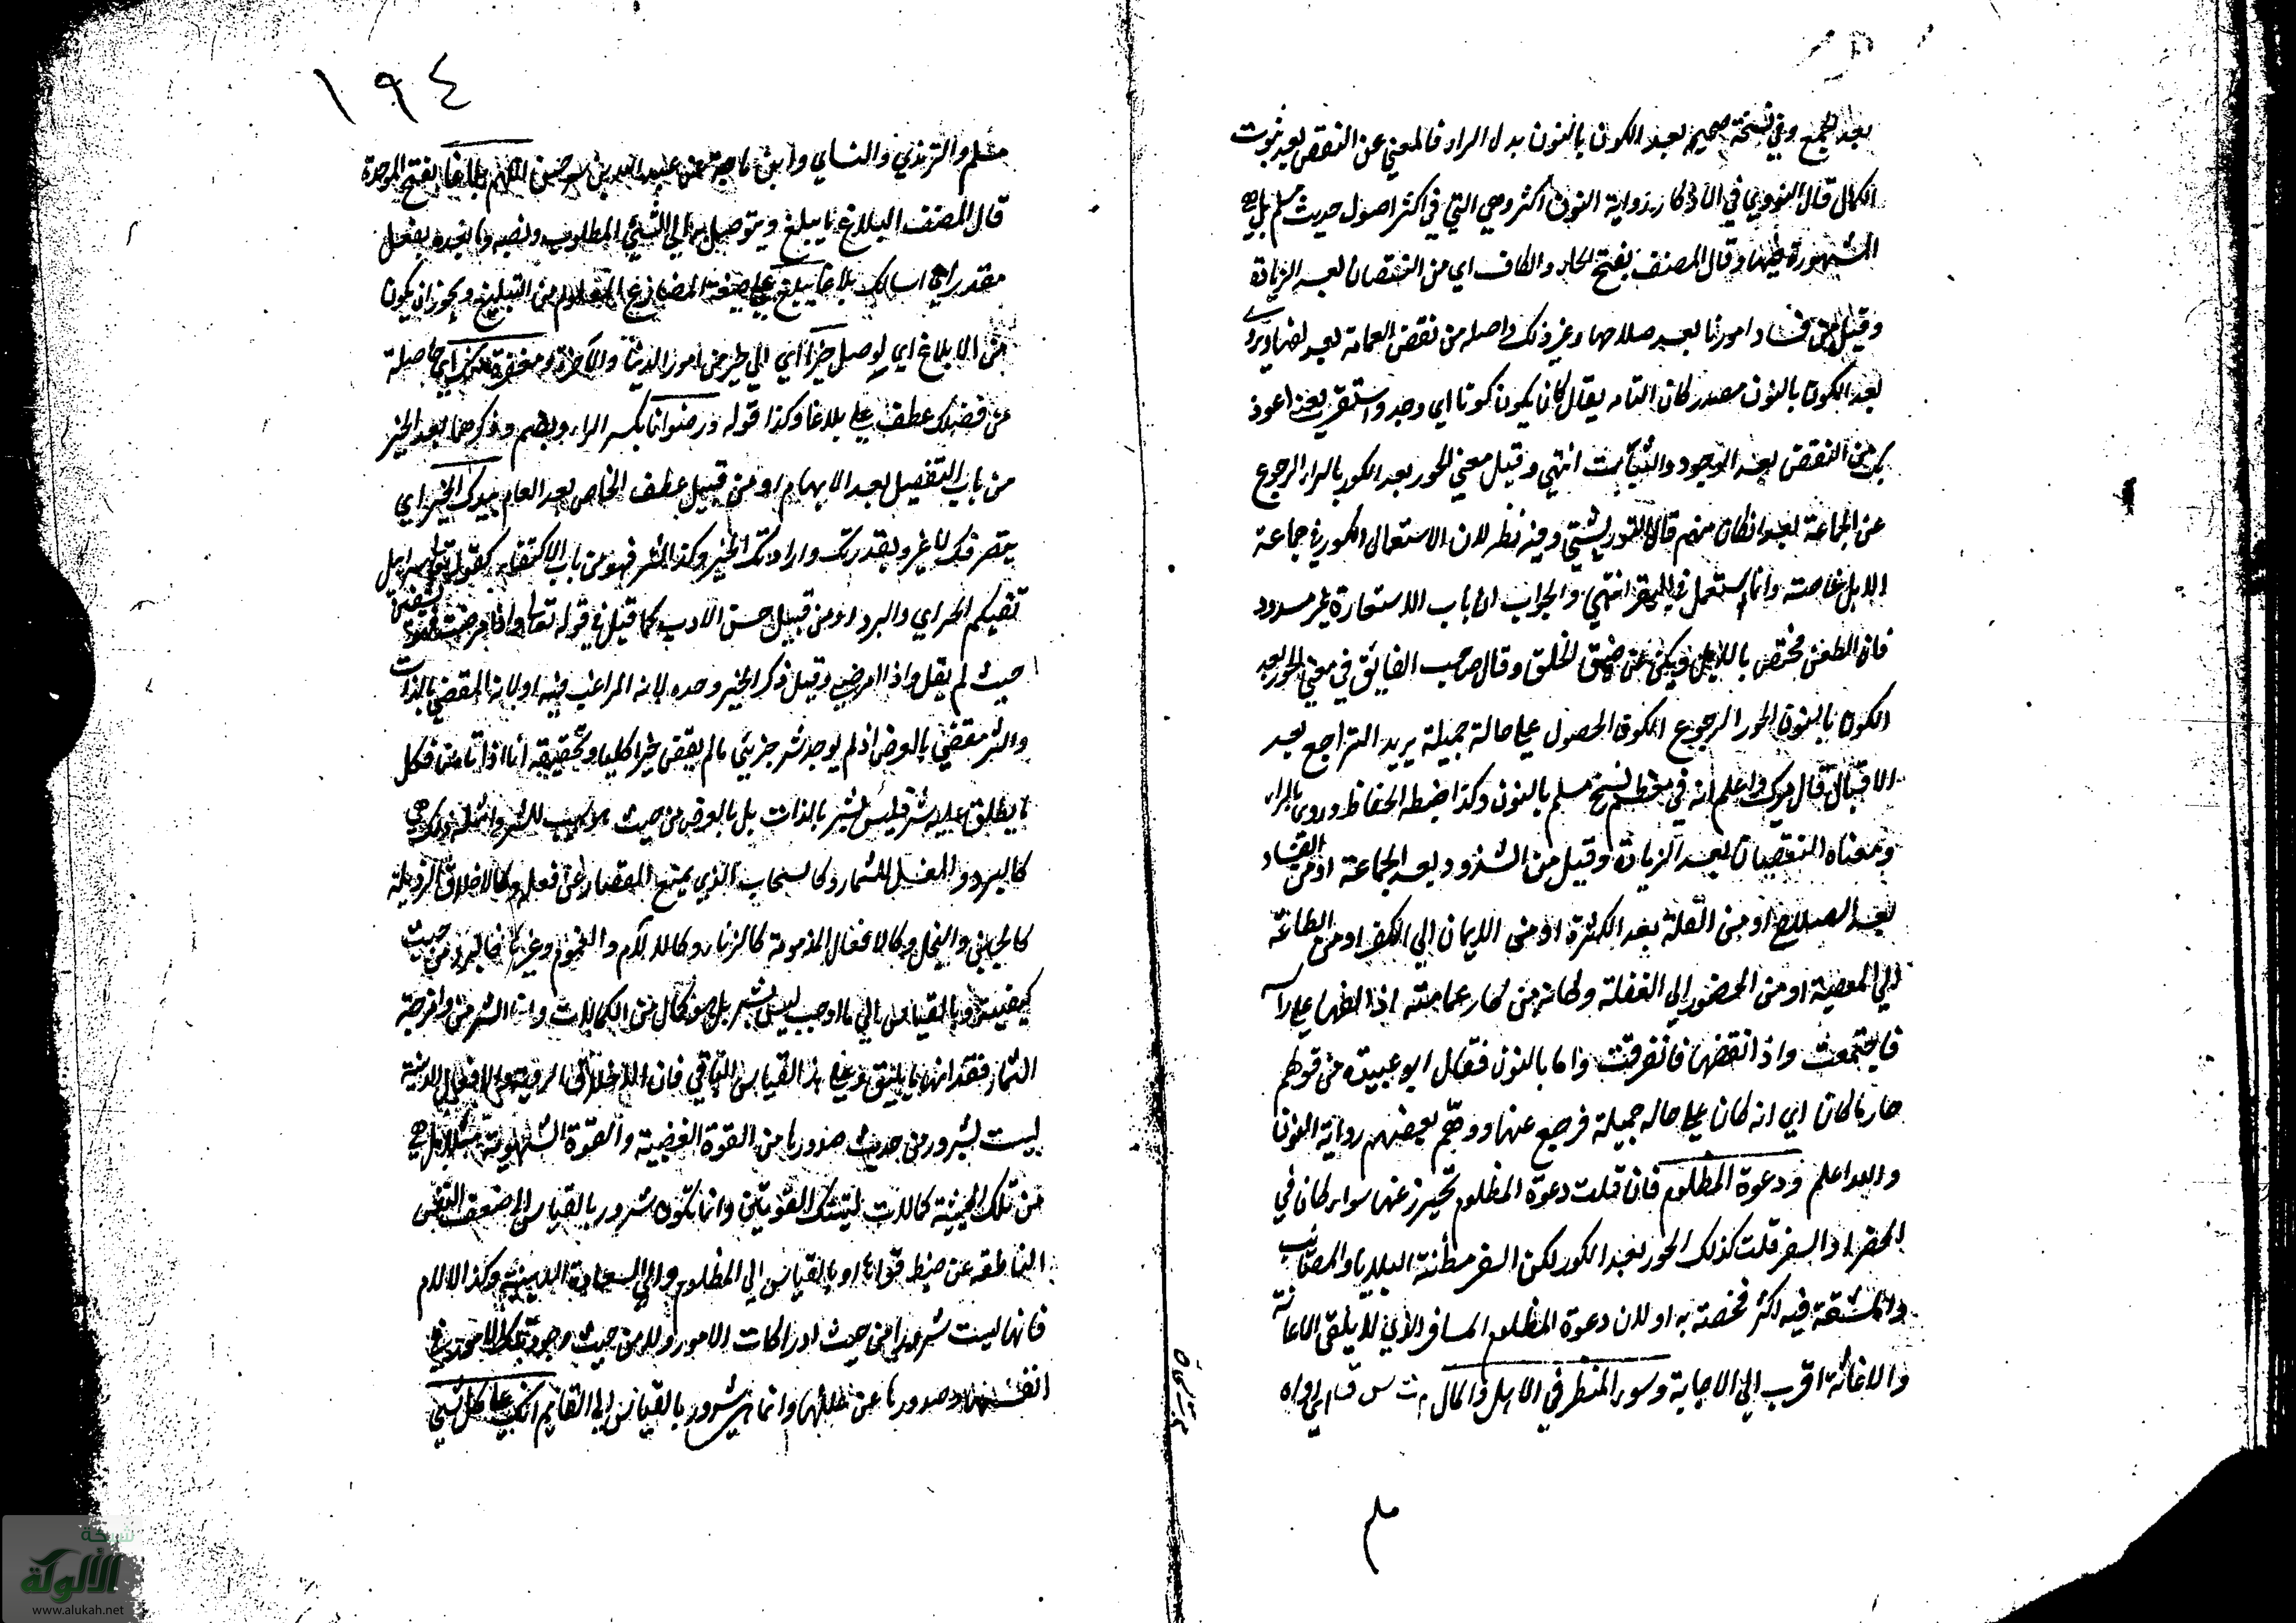 بعد الجمع وفي نسخة صحيحة بعد الكون بالنون بدل الراء فالمعني عن النقص بعد ثبوت
الكمال قال النووي في الاذكار رواية النون اكثر وهي التي في اكثر اصول حديث مسلم بل هي
المشهورة فيها وقال المصنف بفتح الحاء والكاف اي من النقصان بعد الزيادة
وقيل من فساد امورنا بعد صلاحها وغير ذلك واصله من نقض العمامة بعد لفها ويروي
بعد الكون بالنون مصدر كان التامه يقال كان يكون كونا اي وجد واستقر يعني اعوذ
بك من النقض بعد الوجود والثبات انتهي وقيل معني الحور بعد الكور بالراء الرجوع
عن الجماعة بعد ان كان منهم قال التوربشتي وفيه نظر لان الاستعمال الكور في جماعة
الابل خاصة وانما يستعمل في البقر انتهي والجواب ان باب الاستعارة غير مسدود
فان العطن مختص بالابل ويكني عن ضيق الخلق وقال صاحب الفايق في معني الحور بعد
الكون بالنون الحور الرجوع الكون الحصول علي حالة جميلة يريد التراجع بعد
الاقبال قال ميرك واعلم انه في معظم نسخ مسلم بالنون وكذا ضبطه الحفاظ وروي بالراء
ومعناه النقصان بعد الزيادة وقيل من الشذوذ بعد الجماعة او من الفساد
بعد الصلاح او من القلة بعد الكثرة او من الايمان الي الكفر او من الطاعة
الي المعصية او من الحضور الي الغفلة وكانه من كار عمامته اذا لفها علي راسه
فاجتمعت واذا نقضها فانفرقت واما بالنون فقال ابو عبيدة من قولهم
حار بما كان اي انه كان علي حاله جميلة فرجع عنها ووهم بعضهم رواية النون
والله اعلم ودعوة المظلوم فان قلت دعوة المظلوم تحترز عنها سواء كان في
الحضر او السفر قلت كذلك الحور بعد الكور لكن السفر مظنة البلايا والمصائب
والمشقة فيه اكثر فخصته به او لان دعوة المظلوم المسافر الذي لا يلقى الاعانة
والاغاثة اقرب الي الاجابة وسوء المنظر في الاهل والمال م ت س ق اي رواه
مسلم
١٩٤
مسلم والترمذي والنسائي وابن ماجة عن عبد الله بن سرجس اللهم بلاغا بفتح الموحدة
قال المصنف البلاغ ما يبلغ ويتوصل به الي الشيء المطلوب ونصبه وما بعده بفعل
مقدر اي اسالك بلاغا يبلغ علي صيغة المضارع المعلوم من التبليغ ويجوز ان يكون
من الابلاغ اي يوصل خيرا اي الي خير من امور الدنيا والآخرة ومغفرة منك اي حاصلة
من فضلك عطف علي بلاغا وكذا قوله ورضوانا بكسر الراء ويضم وذكرهما بعد الخير
من باب التفصيل بعد الابهام او من قبيل عطف الخاص بعد العام بيدك الخير اي
بتصرفك لا غير وبقدرتك وارادتك الخير وكذا الشر فهو من باب الاكتفاء كقوله تعالي سرابيل
تقيكم الحر اي والبرد او من قبيل حسن الادب كما قيل في قوله تعالي واذا مرضت فهو يشفين
حيث لم يقل واذا امرضني وقيل ذكر الخير وحده لانه المراغب فيه او لانه المقضي بالذات
والشر مقضي بالعرض اذ لم يوجد شر جزئي ما لم يقتض خيرا كليا وتحقيقه انا اذا تاملنا فكل
ما يطلق عليه شر فليس بشر بالذات بل بالعرض من حيث هو سبب للشر وامثلة ذلك هي
كالبرد والمفسد للثمار وكالسحاب الذي يمنع القصار عن فعله وكالاخلاق الرذيلة
كالجبن والبخل وكالافعال المذمومة كالزنا وكالالام والغموم وغيرها فالبرد من حيث
كيفيته وبالقياس الي ما اوجب ليس بشر بل هو كمال من الكمالات وانما الشر من
الثمار فقدانها ما يليق وعلي هذا القياس الباقي فان الاخلاق الردية والافعال الدنية
ليست بشرور من حيث صدورها من القوة الغضبية والقوة الشهوية مثلا بل هي
من تلك الحيثية كمالات لتينك القوتين وانما تكون شرور بالقياس الي ضعف النفس
الناطقه عن ضبط قواها او بالقياس الي المظلوم والي السعادة الدينية وكذا الالام
فانها ليست شرورا من حيث ادراكات الامور ولا من حيث وجود تلك الامور في
انفسها وصدورها عن عللها وانما هي شرور بالقياس الي القايم انك علي كل شيء
شبكة
الألوكة
www.alukah.net